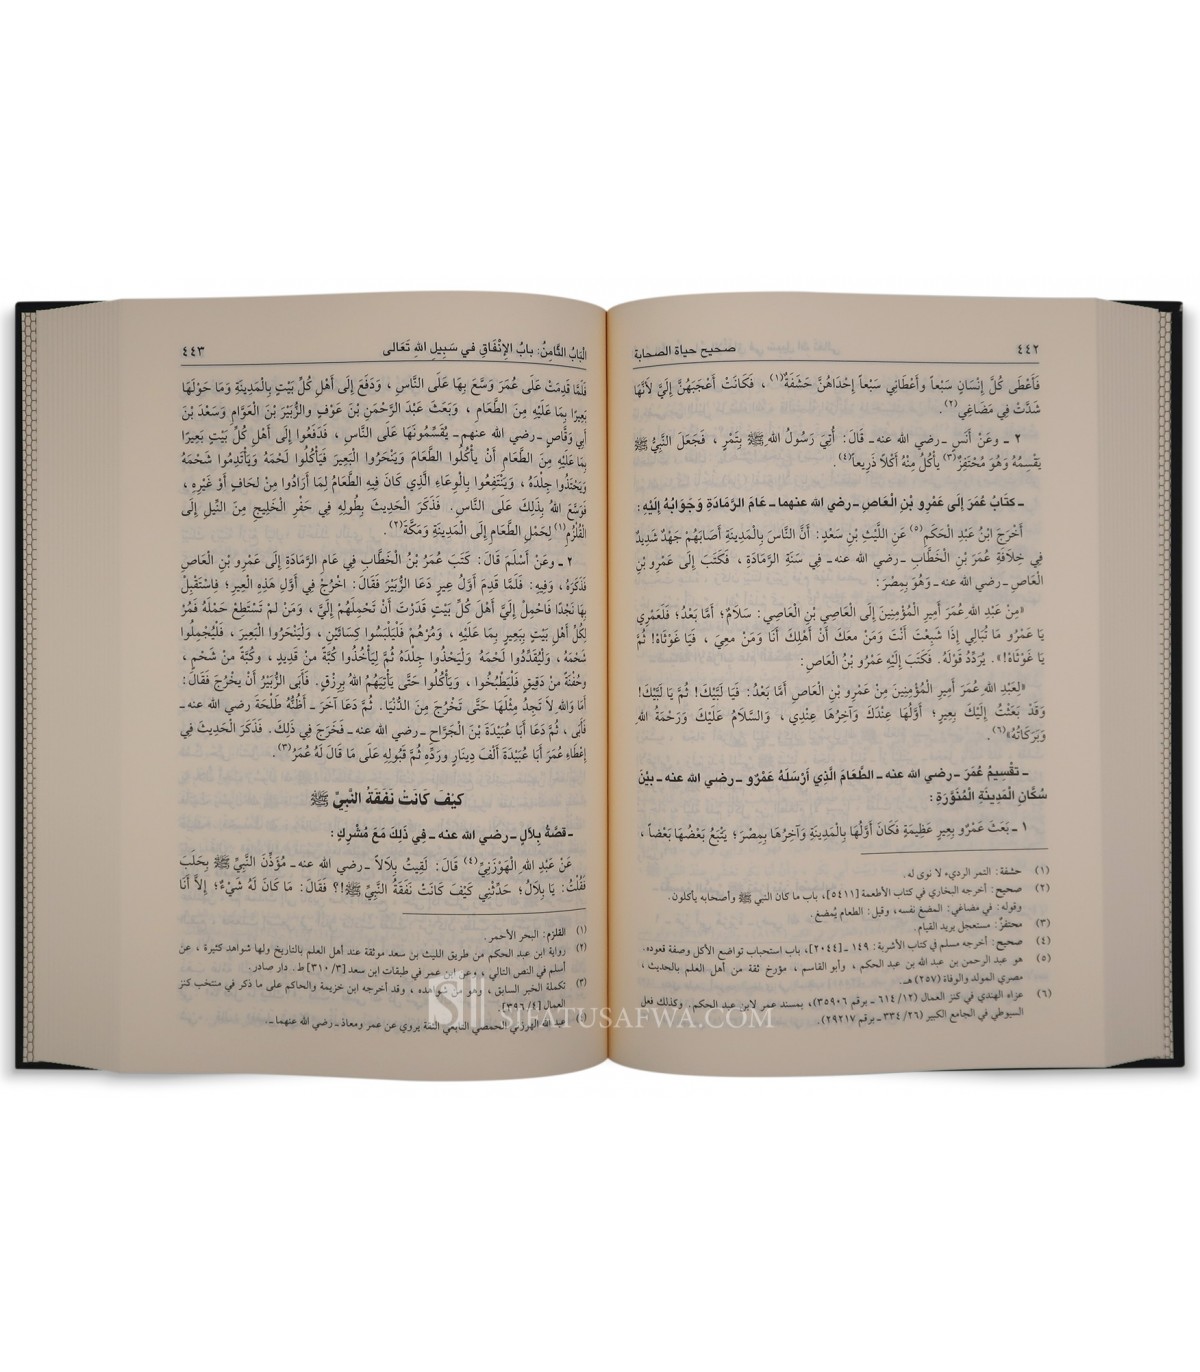 ٤٤٢ صحيح حياة الصحابة
فَأَعْطَى كُلَّ إِنْسَانٍ سَبْعاً وأَعْطَانِي سَبْعاً إِحْدَاهُنَّ حَشَفَةٌ(١) ، فَكَانَتْ أَعْجَبَهُنَّ إِلَيَّ لأَنَّهَا
شَدَّتْ فِي مَضَاغِي(٢).
٢ ـ وعَنْ أَنَسٍ ـ رضي الله عنه ـ قَالَ: أُتِيَ رَسُولُ اللهِ ﷺ بِتَمْرٍ ، فَجَعَلَ النَّبِيُّ ﷺ
يَقْسِمُهُ وَهُوَ مُحْتَفِزٌ(٣) يأكُلُ مِنْهُ أكْلاً ذَرِيعاً(٤).
ـ كِتَابُ عُمَرَ إِلَى عَمْرِو بْنِ الْعَاصِ ـ رضي الله عنهما ـ عَامَ الرَّمَادَةِ وَجَوَابُهُ إِلَيْهِ :
أَخْرَجَ ابْنُ عَبْدِ الْحَكَمِ(٥) عَنِ اللَّيْثِ بْنِ سَعْدٍ: أَنَّ النَّاسَ بِالْمَدِينَةِ أَصَابَهُمْ جَهْدٌ شَدِيدٌ
فِي خِلَافَةِ عُمَرَ بْنِ الْخَطَّابِ ـ رضي الله عنه ـ فِي سَنَةِ الرَّمَادَةِ ، فَكَتَبَ إِلَى عَمْرِو بْنِ
الْعَاصِ ـ رضي الله عنه ـ وَهُوَ بِمِصْرَ:
«مِنْ عَبْدِ اللهِ عُمَرَ أَمِيرِ الْمُؤْمِنِينَ إِلَى الْعَاصِي بْنِ الْعَاصِي: سَلَامٌ؛ أَمَّا بَعْدُ؛ فَلَعَمْرِي
يَا عَمْرُو مَا تُبَالِي إِذَا شَبِعْتَ أَنْتَ وَمَنْ مَعَكَ أَنْ أَهْلِكَ أَنَا وَمَنْ مَعِيَ ، فَيَا غَوْثَاهُ! ثُمَّ
يَا غَوْثَاهُ!». يُرَدِّدُ قَوْلَهُ. فَكَتَبَ إِلَيْهِ عَمْرُو بْنُ الْعَاصِ:
«لِعَبْدِ اللهِ عُمَرَ أَمِيرِ الْمُؤْمِنِينَ مِنْ عَمْرِو بْنِ الْعَاصِ أَمَّا بَعْدُ: فَيَا لَبَّيْكَ! ثُمَّ يَا لَبَّيْكَ!
وَقَدْ بَعَثْتُ إِلَيْكَ بِعِيرٍ؛ أَوَّلُهَا عِنْدَكَ وَآخِرُهَا عِنْدِي ، وَالسَّلَامُ عَلَيْكَ وَرَحْمَةُ اللهِ
وَبَرَكَاتُهُ»(٦).
ـ تَقْسِيمُ عُمَرَ ـ رضي الله عنه ـ الطَّعَامَ الَّذِي أَرْسَلَهُ عَمْرٌو ـ رضي الله عنه ـ بيْنَ
سُكَّانِ الْمَدِينَةِ الْمُنَوَّرَةِ:
١ ـ بَعَثَ عَمْرٌو بِعِيرٍ عَظِيمَةٍ فَكَانَ أَوَّلُهَا بِالْمَدِينَةِ وَآخِرُهَا بِمِصْرَ؛ يَتْبَعُ بَعْضُهَا بَعْضاً ،
(١) حشفة: التمر الرديء لا نوى له.
(٢) صحيح: أخرجه البخاري في كتاب الأطعمة [٥٤١١]، باب ما كان النبي ﷺ وأصحابه يأكلون.
وقوله: في مضاغي: المضغ نفسه، وقيل: الطعام يُمضغ.
(٣) محتفزٌ: مستعجل يريد القيام.
(٤) صحيح: أخرجه مسلم في كتاب الأشربة: ١٤٩ ـ [٢٠٤٤]، باب استحباب تواضع الآكل وصفة قعوده.
(٥) هو عبد الرحمن بن عبد الله بن عبد الحكم ، وأبو القاسم ، مؤرخ ثقة من أهل العلم بالحديث ،
مصري المولد والوفاة (٢٥٧) هـ.
(٦) عزاه الهندي في كنز العمال (١٢/ ٦١٤ ـ برقم ٣٥٩٠٦)، بمسند عمر لابن عبد الحكم. وكذلك فعل
السيوطي في الجامع الكبير (٢٦/ ٣٣٤ ـ برقم ٢٩٢١٧).
الْبَابُ الثَّامِنُ: بابُ الإنْفَاقِ في سَبِيلِ اللهِ تَعَالى ٤٤٣
فَلَمَّا قَدِمَتْ عَلَى عُمَرَ وَسَّعَ بِهَا عَلَى النَّاسِ ، وَدَفَعَ إِلَى أَهْلِ كُلِّ بَيْتٍ بِالْمَدِينَةِ وَمَا حَوْلَهَا
بَعِيرًا بِمَا عَلَيْهِ مِنَ الطَّعَامِ ، وَبَعَثَ عَبْدَ الرَّحْمَنِ بْنَ عَوْفٍ والزُّبَيْرَ بْنَ الْعَوَّامِ وَسَعْدَ بْنَ
أبي وَقَّاصٍ ـ رضي الله عنهم ـ يُقَسِّمُونَهَا عَلَى النَّاسِ ، فَدَفَعُوا إِلَى أَهْلِ كُلِّ بَيْتٍ بَعِيرًا
بِمَا عَلَيْهِ مِنَ الطَّعَامِ أَنْ يَأْكُلُوا الطَّعَامَ وَيَنْحَرُوا الْبَعِيرَ فَيَأْكُلُوا لَحْمَهُ وَيَأْتَدِمُوا شَحْمَهُ
وَيَحْتَذُوا جِلْدَهُ ، وَيَنْتَفِعُوا بِالْوِعَاءِ الَّذِي كَانَ فِيهِ الطَّعَامُ لِمَا أَرَادُوا مِنْ لِحَافٍ أَوْ غَيْرِهِ ،
فَوَسَّعَ اللهُ بِذَلِكَ عَلَى النَّاسِ. فَذَكَرَ الْحَدِيثَ بِطُولِهِ فِي حَفْرِ الْخَلِيجِ مِنَ النِّيلِ إِلَى
الْقُلْزُمِ(١) لِحَمْلِ الطَّعَامِ إِلَى الْمَدِينَةِ وَمَكَّةَ(٢).
٢ ـ وعَنْ أَسْلَمَ قَالَ: كَتَبَ عُمَرُ بْنُ الْخَطَّابِ فِي عَامِ الرَّمَادَةِ إِلَى عَمْرِو بْنِ الْعَاصِ
فَذَكَرَهُ ، وَفِيهِ: فَلَمَّا قَدِمَ أَوَّلُ عِيرٍ دَعَا الزُّبَيْرَ فَقَالَ: اخْرُجْ فِي أَوَّلِ هَذِهِ الْعِيرِ؛ فاسْتَقْبِلْ
بِهَا نَجْدًا فَاحْمِلْ إِلَيَّ أَهْلَ كُلِّ بَيْتٍ قَدَرْتَ أَنْ تَحْمِلَهُمْ إِلَيَّ ، وَمَنْ لَمْ تَسْتَطِعْ حَمْلَهُ فَمُرْ
لِكُلِّ أَهْلِ بَيْتٍ بِبَعِيرٍ بِمَا عَلَيْهِ ، وَمُرْهُمْ فَلْيَلْبَسُوا كِسَائَيْنِ ، وَلْيَنْحَرُوا الْبَعِيرَ ، فَلْيُجْمِلُوا
شَحْمَهُ ، وَلْيُقَدِّدُوا لَحْمَهُ وَلْيَحْذُوا جِلْدَهُ ثُمَّ لِيَأْخُذُوا كُبَّةً مِنْ قَدِيدٍ ، وكُبَّةً مِنْ شَحْمٍ ،
وحُفْنَةً مِنْ دَقِيقٍ فَلْيَطْبُخُوا ، وَيَأْكُلُوا حَتَّى يَأْتِيَهُمُ اللهُ بِرِزْقٍ. فَأَبَى الزُّبَيْرُ أَنْ يَخْرُجَ فَقَالَ:
أَمَا وَاللهِ لَا تَجِدُ مِثْلَهَا حَتَّى تَخْرُجَ مِنَ الدُّنْيَا. ثُمَّ دَعَا آخَرَ ـ أَظُنُّهُ طَلْحَةَ رضي الله عنه ـ
فأَبَى ، ثُمَّ دَعَا أَبَا عُبَيْدَةَ بْنَ الْجَرَّاحِ ـ رضي الله عنه ـ فَخَرَجَ فِي ذَلِكَ. فَذَكَرَ الْحَدِيثَ فِي
إِعْطَاءِ عُمَرَ أَبَا عُبَيْدَةَ أَلْفَ دِينَارٍ وَرَدِّهِ ثُمَّ قَبُولِهِ عَلَى مَا قَالَ لَهُ عُمَرُ(٣).
كَيْفَ كَانَتْ نَفَقَةُ النَّبِيِّ ﷺ
ـ قصَّةُ بِلَالٍ ـ رضي الله عنه ـ فِي ذَلِكَ مَعَ مُشْرِكٍ :
عَنْ عَبْدِ اللهِ الْهَوْزَنِيِّ(٤) قَالَ: لَقِيتُ بِلَالاً ـ رضي الله عنه ـ مُؤَذِّنَ النَّبِيِّ ﷺ بِحَلَبَ
فَقُلْتُ: يَا بِلَالُ؛ حَدِّثْنِي كَيْفَ كَانَتْ نَفَقَةُ النَّبِيِّ ﷺ!؟ فَقَالَ: مَا كَانَ لَهُ شَيْءٌ؛ إِلَّا أَنَا
(١) القلزم: البحر الأحمر.
(٢) رواية ابن عبد الحكم من طريق الليث بن سعد موثقة عند أهل العلم بالتاريخ ولها شواهد كثيرة ، عن
أسلم في النص التالي ، وعن ابن عمر في طبقات ابن سعد [٣/ ٣١٠] ط. دار صادر.
(٣) تكملة الخبر السابق ، وهو من شواهده ، وقد أخرجه ابن خزيمة والحاكم على ما ذكر في منتخب كنز
العمال [٤/ ٣٩٦].
(٤) عبد الله الهوزني الحمصي التابعي الثقة يروي عن عمر ومعاذ ـ رضي الله عنهما ـ.
SIFATUSAFWA.COM